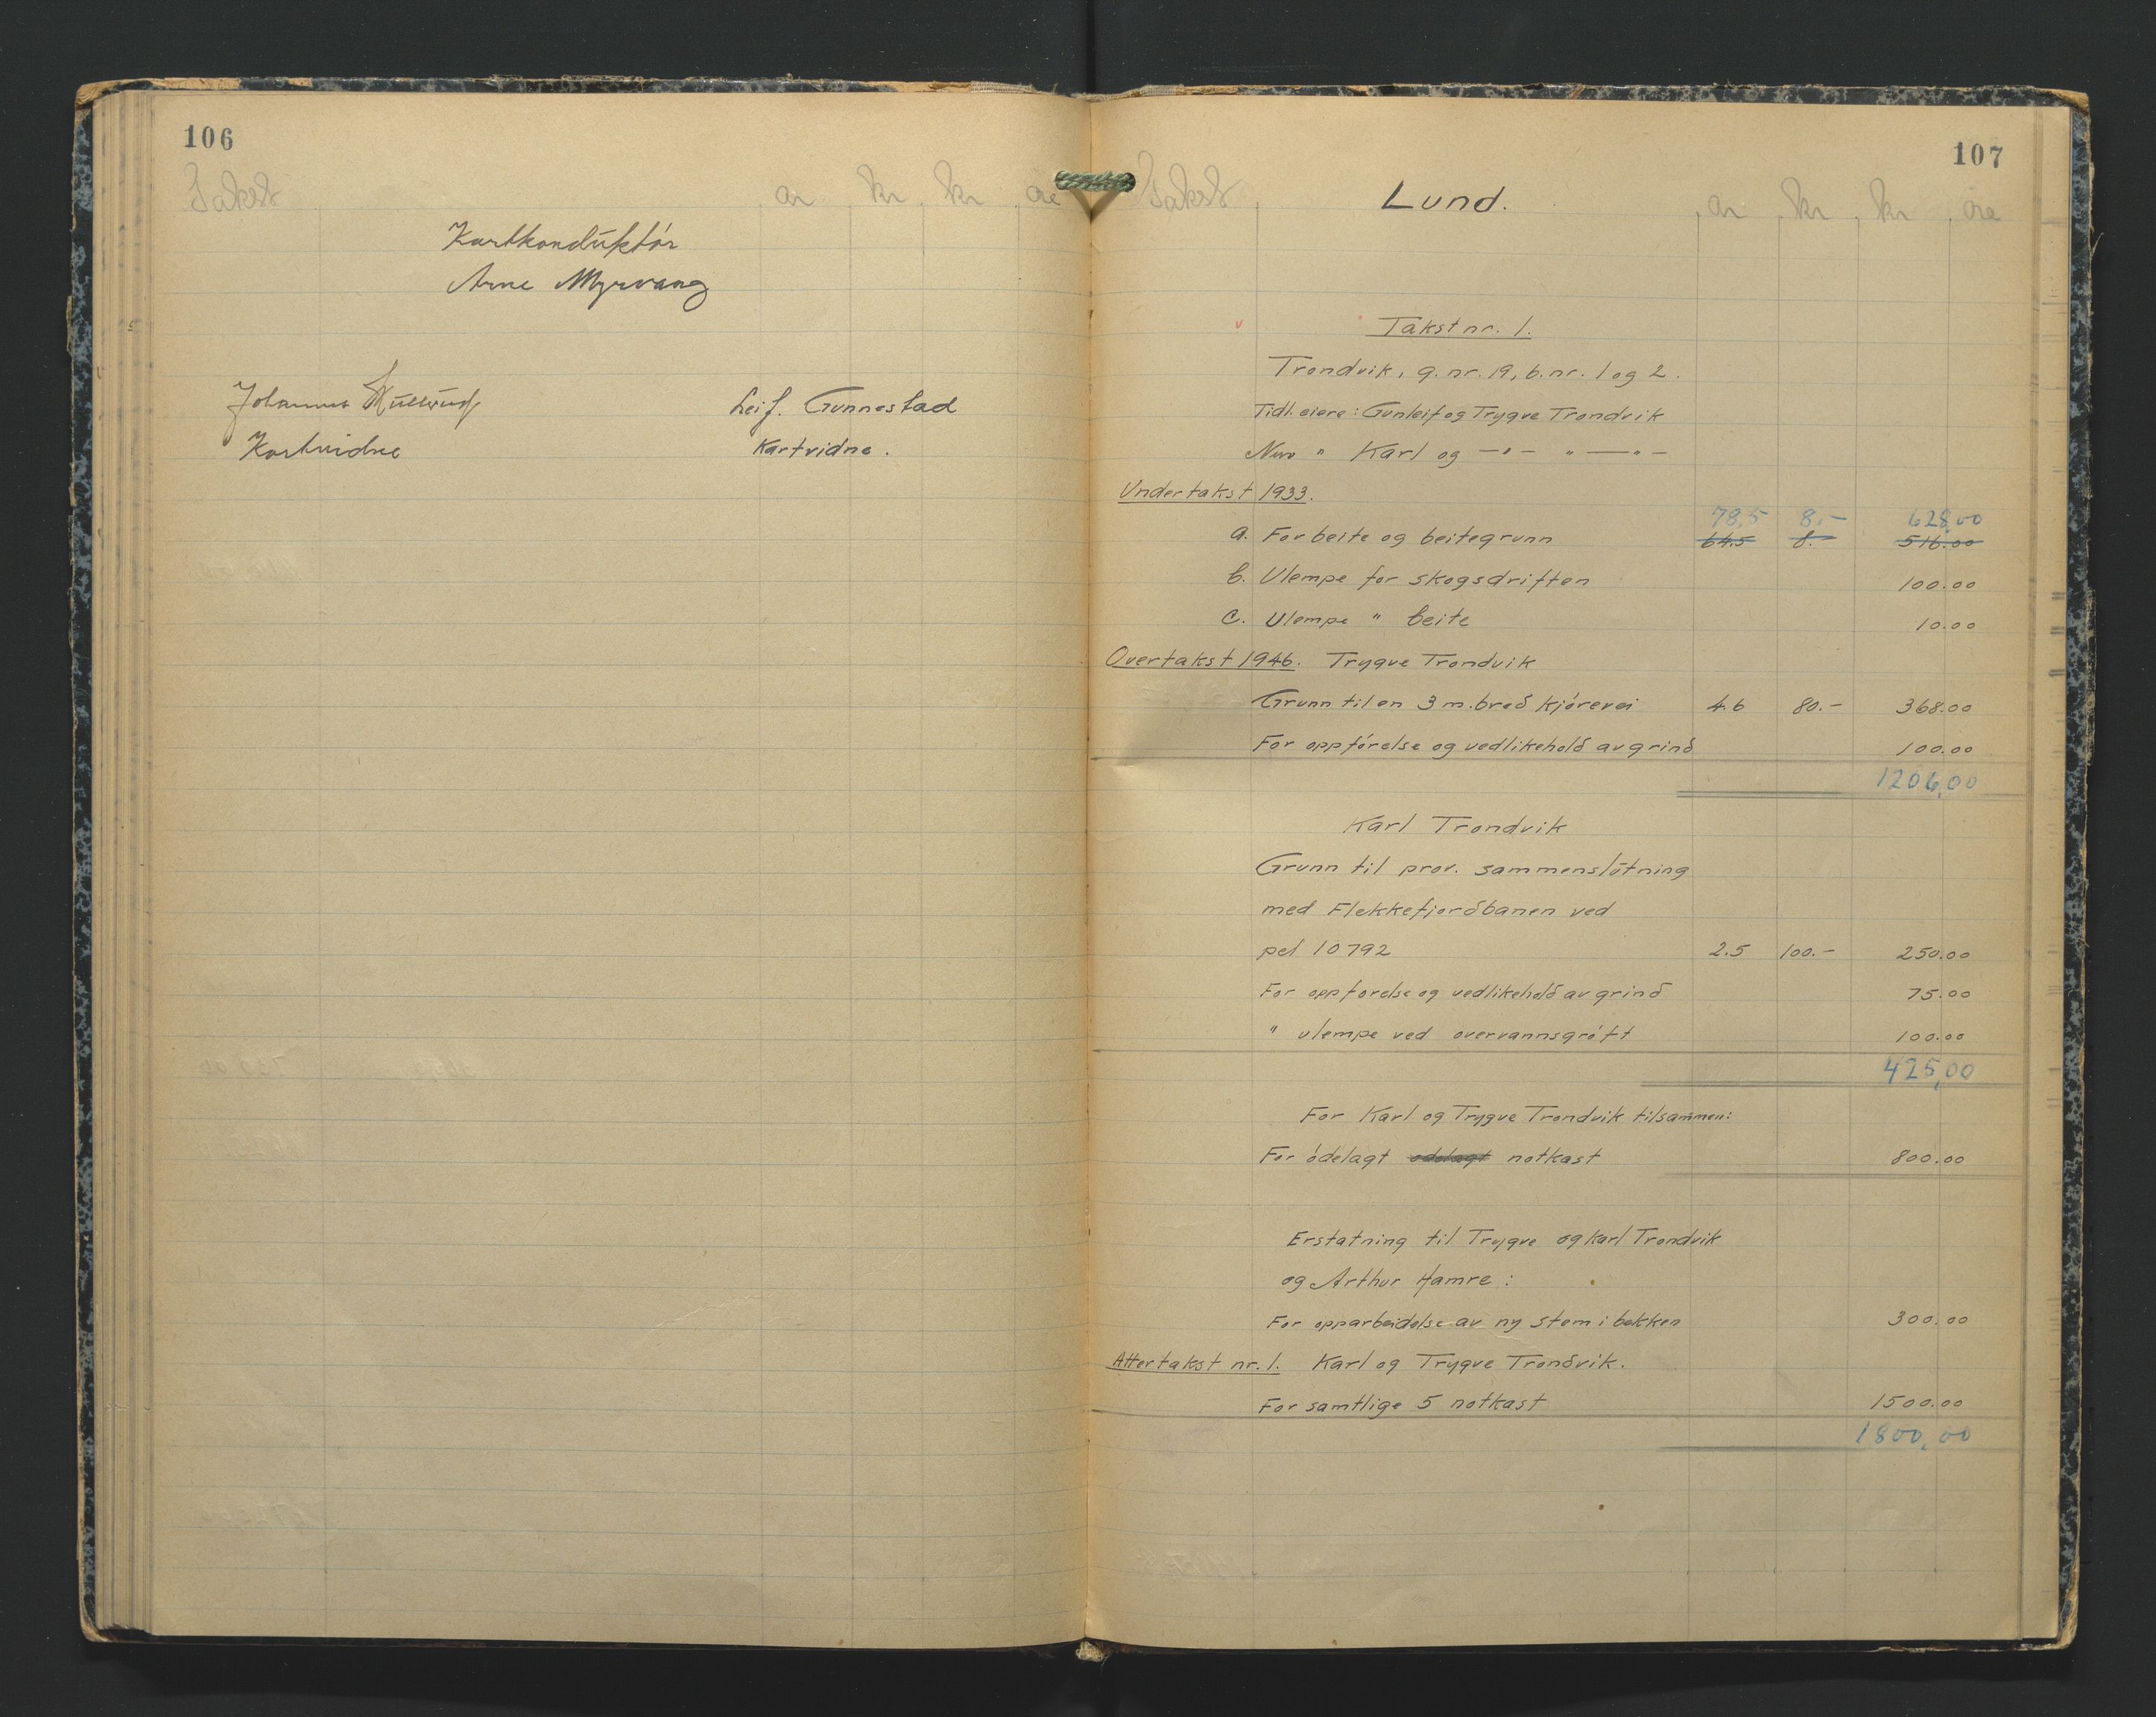 106
Takst ar kr kr øre
Kartkonduktør
Arne Myrvang
Johannes
Leif. Gunnestad
Kartvidne
Kartvidne.
107
Takst Lund. ar kr kr øre
v Takst nr. 1.
Trondvik, g.nr. 19, b.nr. 1 og 2.
Tidl. eiere: Gunleif og Trygve Trondvik
Nuv " Karl og —"— " —"—
Undertakst 1933.
78,5 8,- 628,00
a. For beite og beitegrunn 64.5 8.- 516.00
b. Ulempe for skogsdriften 100.00
c. Ulempe " beite 10.00
Overtakst 1946. Trygve Trondvik
Grunn til en 3 m. bred kjørevei 4.6 80.- 368.00
For oppførelse og vedlikehold av grind 100.00
1206,00
Karl Trondvik
Grunn til prov. sammenslutning
med Flekkefjordbanen ved
pel 10792 2.5 100.- 250.00
For oppførelse og vedlikehold av grind 75.00
" ulempe ved overvannsgrøft 100.00
425,00
For Karl og Trygve Trondvik tilsammen:
For ødelagt ødelagt notkast 800.00
Erstatning til Trygve og Karl Trondvik
og Arthur Hamre:
For opparbeidelse av ny stem i bekken 300.00
Attertakst nr. 1. Karl og Trygve Trondvik.
For samtlige 5 notkast 1500.00
1800,00